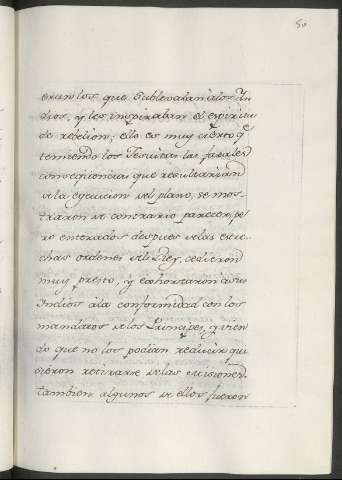 50
eran los que sublevaban a los Yn
dios, y les inspiraban el espiritu
de rebelion; ello es muy cierto q.e
temiendo los Jesuitas las fatales
conseqüencias que resultarian
de la egecucion del plano, se mos-
traron de contrario parecer, pe
ro enterados despues de las estre-
chas ordenes del Rey, cedieron
muy presto, y exhortaron a sus
Indios à la conformidad con los
mandatos de los Principes, y vien
do que no los podian reducir qui
sieron retirarse de las misiones.
tambien algunos de ellos fueron